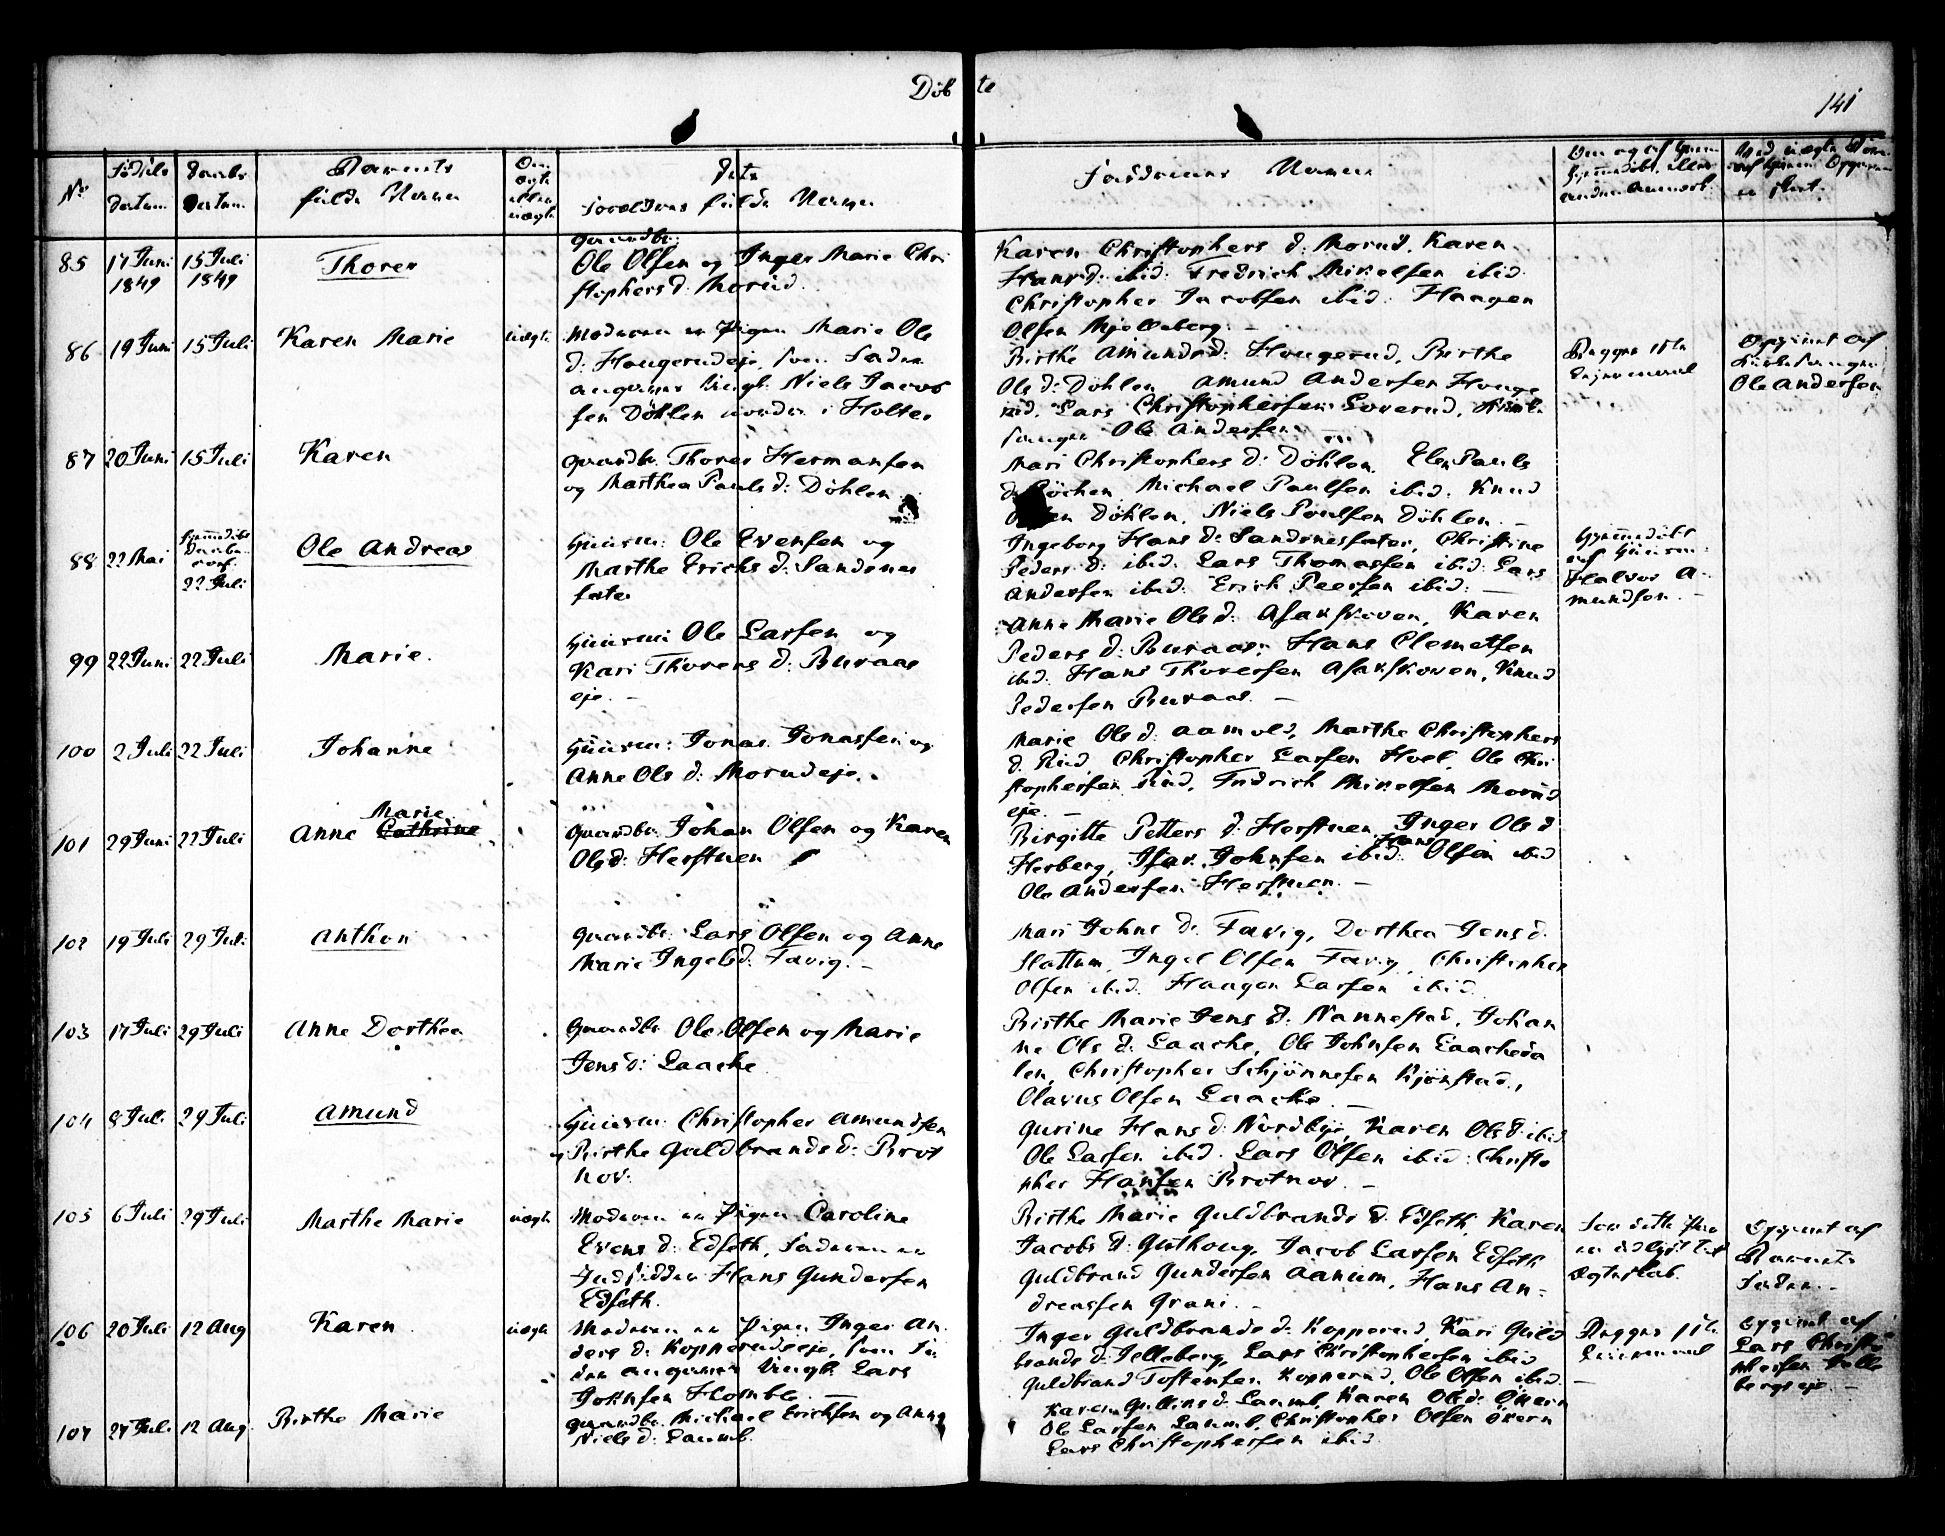 Döbte
141
No
Födsels Datum
Daabs Datum
Barnets fulde Navn
Om ægte eller uægte
Dets Forældres fulde Navne
Faddernes Navne
85 17 Juni 1849 15 Juli 1849 Thorer
Gaardbr:
Ole Olsen og Inger Marie Chri
stophersd: Morud.
Karen Christophers d: Morud, Karen
Hansd: ibid: Fredrich Mikelsen ibid:
Christopher Jacobsen ibid: Haagen
Olsen Mjelleberg. –
86 19 Juni 15 Juli Karen Marie uægte
Moderen er Pigen Marie Ole
d: Hougerudeje, som Fader
angiver Ungk: Niels Jacob
sen Döhlen nordre i Holter
Birthe Amundsd: Hougerud, Birthe
Ols d: Döhlen Amund Andersen Houge
rud, Lars Christophersen Loverud, Kirke
sanger Ole Andersen.
Opgivet af
Kirkesanger
Ole Andersen
87 20 Juni 15 Juli Karen
Gaardbr: Thorer Hermansen
og Marthea Pauls d: Döhlen
Mari Christophers d: Döhlen, Elen Pauls
Michael Paulsen ibid: Knud
Döhlen, Niels Poulsen Döhlen. –
88 22 Mai 22 Juli Ole Andreas
Huusm: Ole Evensen og
Marthe Erichs d: Sandsnes
fater
Ingeborg Hans d: Sandsnesfater, Christine
Peders d: ibid: Lars Thomassen ibid: Lars
Andersen ibid: Erich Peersen ibid: –
Hjemmedöbt
af Huusm:
Halvor A-
mundsen. –
99 22 Juni 22 Juli Marie.
Huusm: Ole Larsen og
Kari Thorers d: Buraas
eje. –
Anne Marie Ols d: Asakskoven, Karen
Peders d: Buraas, Hans Clemetsen
ibid: Hans Thoresen Asakskoven, Knud
Pedersen Buraas. –
100 2 Juli 22 Juli Johanne
Huusm: Jonas Jonassen og
Anne Ols d: Morudeje.
Marie Ols d: Aamold, Marthe Christophers
d: Rud Christopher Larsen Hoel, Ole Chri
stophersen Rud, Fredrich Mikelsen Morud
eje. –
101 29 Juni 22 Juli Anne Cathrine
Marie
Gaardbr: Johan Olsen og Karen
Olsd: Herstuen
Birgitte Petters d: Herstuen, Inger Ols d:
Herberg, Isak Johnsen ibid: Hans Olsen ibid
Ole Andersen Herstuen. –
102 19 Juli 29 Juli Anthon
Gaardbr: Lars Olsen og Anne
Marie Ingelsd: Favig. –
Mari Johns d: Favig, Dorthea Jens d:
Slattum, Ingel Olsen Favig, Christopher
Olsen ibid: Haagen Larsen ibid.
103 17 Juli 29 Juli Anne Dorthea
Gaardbr: Ole Olsen og Marie
Jensd: Laache
Birthe Marie Jens d: Nannestad, Johan
ne Ols d: Laache, Ole Johnsen Laacheda
len, Christopher Schjönnesen Kjönstad,
Olavus Olsen Laache. –
104 8 Juli 29 Juli Amund
Huusm: Christopher Amundsen
og Birthe Guldbrandsd: Brot
nov:
Gurine Hans d: Nordbye, Karen Ols d: ibid
Ole Larsen ibid: Lars Olsen ibid: Christo
pher Hansen Brotnov. –
105 6 Juli 29 Juli Marthe Marie uægte
Moderen er Pigen Caroline
Evens d: Edseth, Faderen er
Indsidder Hans Gundersen
Edseth.
Birthe Marie Guldbrands d: Edseth, Karen
Jacobs d: Gisthoug, Jacob Larsen Edseth
Guldbrand Gundersen Aanum, Hans An-
dreassen Grani. –
Opgivet af
Barnets
Fader. –
106 20 Juli 12 Aug Karen uægte
Moderen er Pigen Inger An
ders d: Kopperudseje, som Fa
der angiver Ungk: Lars
Johnsen Homble. –
Inger Guldbrands d: Kopperud, Kari Guld
brands d: Jelleberg, Lars Christophersen ibid
Guldbrand Tostensen Kopperud, Ole Olsen ibid.
Opgivet af
Lars Christo
phersen Jelle
bergseje. –
107 27 Juli 12 Aug Birthe Marie
Gaardbr: Michael Erichsen og Anne
Niels d: Laumb.
Karen Gullins d: Laumb, Karen Ols d: Økern
Ole Larsen Laumb, Christopher Olsen Økern
Lars Christophersen ibid.